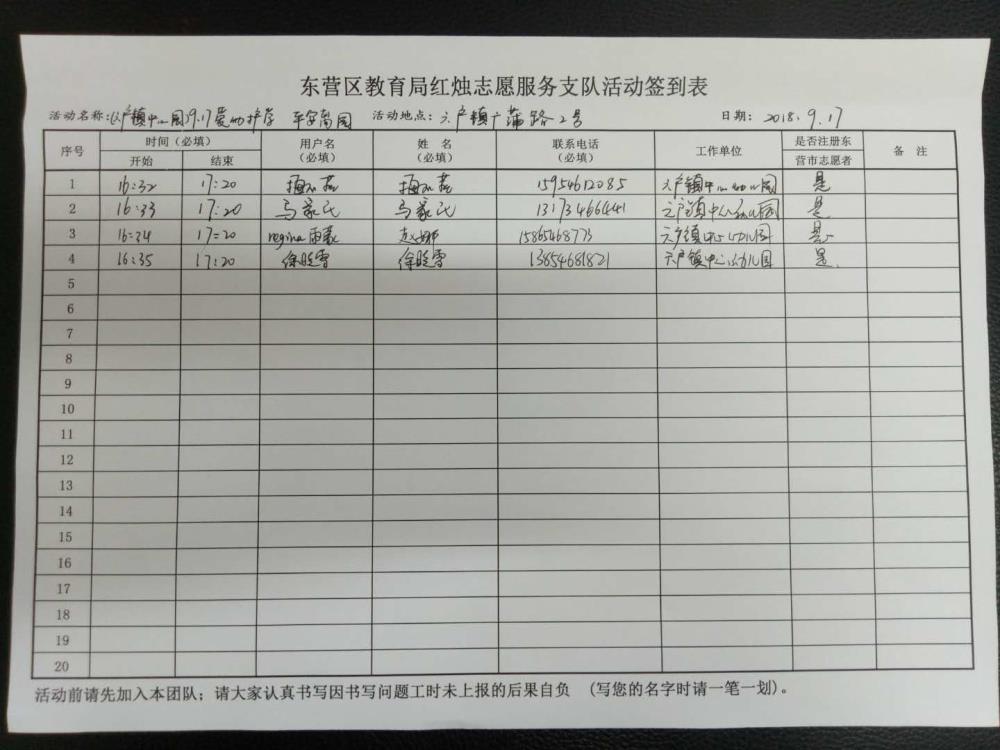 东营区教育局红烛志愿服务支队活动签到表
活动名称:六户镇中心园9.17爱幼护学 平安离园 活动地点:六户镇广蒲路2号 日期: 2018.9.17
序号 时间(必填) 用户名(必填) 姓名(必填) 联系电话(必填) 工作单位 是否注册东营市志愿者 备注
开始 结束
1 16:32 17:20 燕 燕 15954612085 六户镇中心幼儿园 是
2 16:33 17:20 马 马 13173466441 六户镇中心幼儿园 是
3 16:34 17:20 regina雨 赵娜 15865468773 六户镇中心幼儿园 是
4 16:35 17:20 徐晓雪 徐晓雪 13854681821 六户镇中心幼儿园 是
5
6
7
8
9
10
11
12
13
14
15
16
17
18
19
20
活动前请先加入本团队；请大家认真书写因书写问题工时未上报的后果自负 (写您的名字时请一笔一划)。